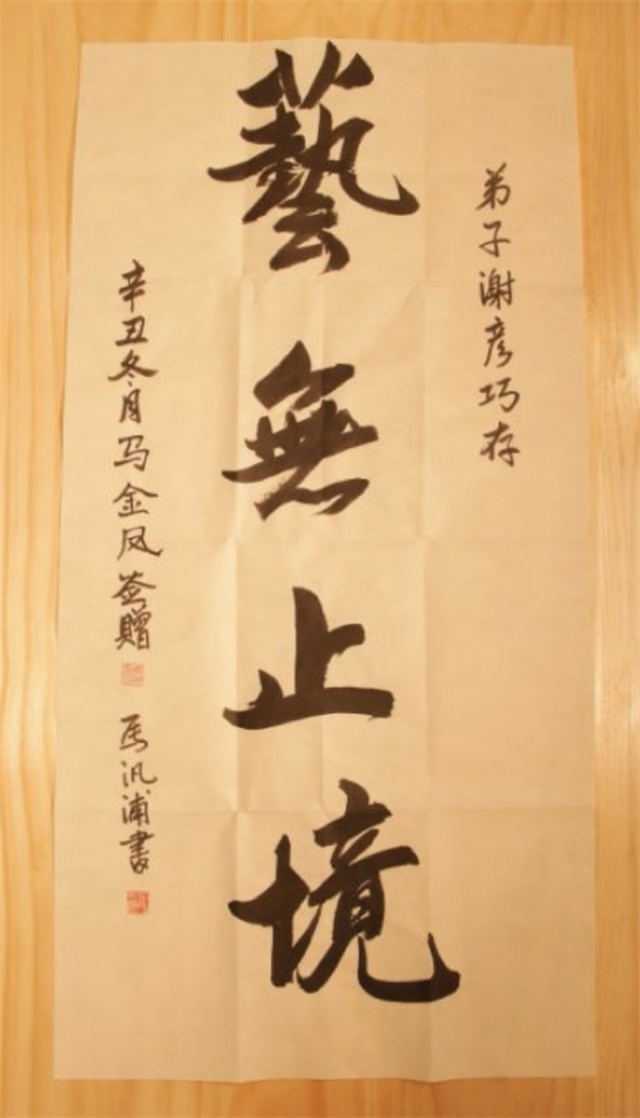 弟子谢彦巧存
藝無止境
辛丑冬月马金凤签赠
馮汎浦書